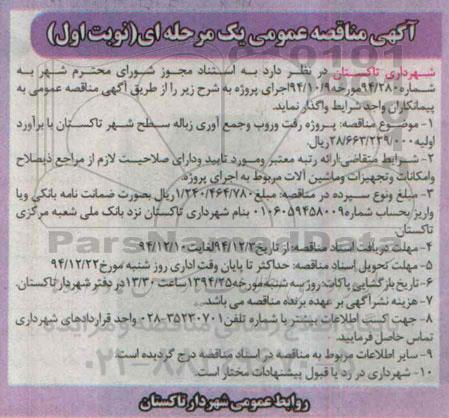 آگهی مناقصه عمومی یک مرحله ای(نوبت اول)
شهرداری تاکستان در نظر دارد به استناد مجوز شورای محترم شهر به
شماره۹۴/۲۸۰مورخه۹۴/۱۰/۹اجرای پروژه به شرح زیر را از طریق آگهی مناقصه عمومی به
پیمانکاران واجد شرایط واگذار نماید.
۱- موضوع مناقصه: پروژه رفت وروب وجمع آوری زباله سطح شهر تاکستان با برآورد
اولیه۲۸/۶۶۳/۲۳۹/۰۰۰ریال.
۲- شرایط متقاضی:ارائه رتبه معتبر ومورد تایید ودارای صلاحیت لازم از مراجع ذیصلاح
وامکانات وتجهیزات وماشین آلات مربوط به اجرای پروژه.
۳- مبلغ ونوع سپرده در مناقصه: مبلغ۱/۲۴۰/۴۶۴/۷۸۰ریال بصورت ضمانت نامه بانکی ویا
واریز بحساب شماره۰۱۰۶۰۵۹۴۵۸۰۰۹ بنام شهرداری تاکستان نزد بانک ملی شعبه مرکزی
تاکستان.
۴- مهلت دریافت اسناد مناقصه: از تاریخ۹۴/۱۲/۳لغایت۹۴/۱۲/۱۰
۵- مهلت تحویل اسناد مناقصه: حداکثر تا پایان وقت اداری روز شنبه مورخ۹۴/۱۲/۲۲
۶- تاریخ بازگشایی پاکات: روز سه شنبه مورخه ساعت ۱۳/۳۰در دفتر شهردار تاکستان.
۷- هزینه نشرآگهی بر عهده برنده مناقصه می باشد.
۸- جهت کسب اطلاعات بیشتر با شماره تلفن۳۵۲۳۰۷۰۱-۰۲۸ واحد قراردادهای شهرداری
تماس حاصل فرمایید.
۹- سایر اطلاعات مربوط به مناقصه در اسناد مناقصه درج گردیده است.
۱۰- شهرداری در رد یا قبول پیشنهادات مختار است.
روابط عمومی شهردار تاکستان
ParsNamadData